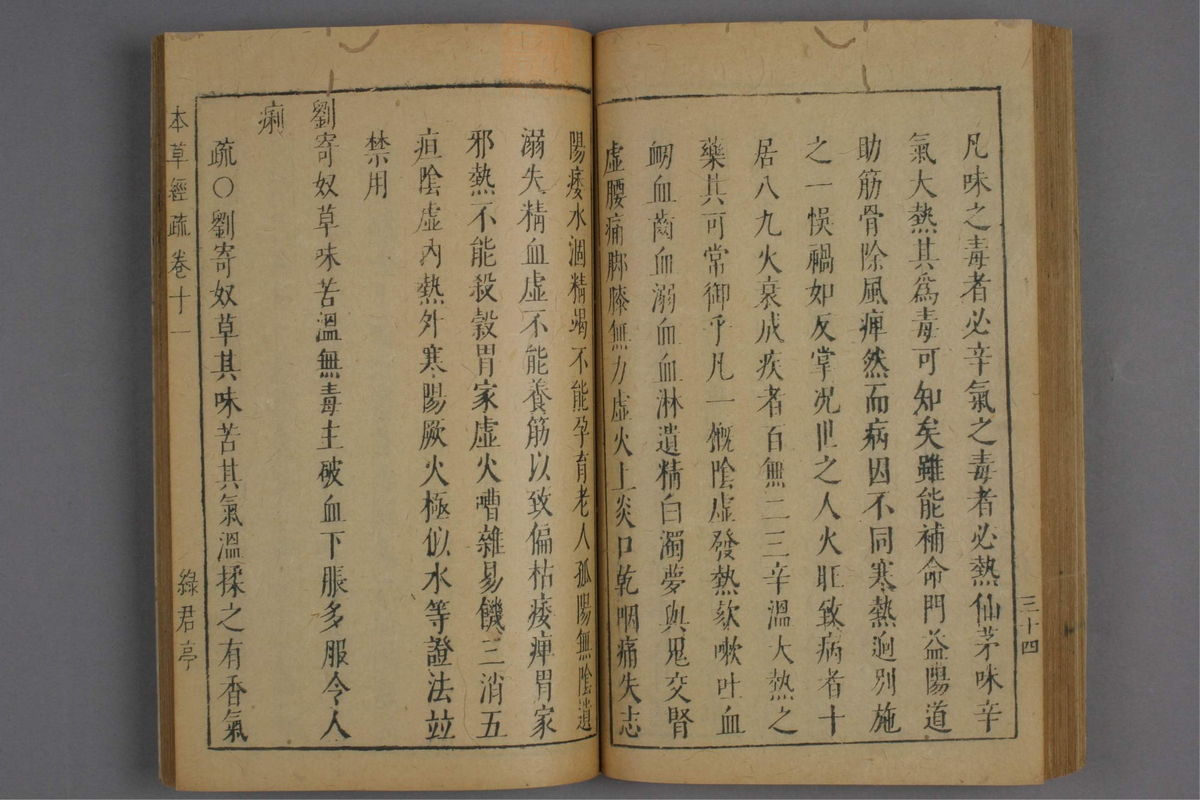 凡味之毒者必辛氣之毒者必熱仙茅味辛
氣大熱其爲毒可知矣雖能補命門益陽道
助筋骨除風痺然而病因不同寒熱迥別施
之一悞禍如反掌况世之人火旺致病者十
居八九火衰成疾者百無二三辛溫大熱之
藥其可常御乎凡一概陰虛發熱欬嗽吐血
衂血齒血溺血血淋遺精白濁夢與鬼交腎
虛腰痛脚膝無力虛火上炎口乾咽痛失志
三十四
陽痿水涸精竭不能孕育老人孤陽無陰遺
溺失精血虛不能養筋以致偏枯痿痺胃家
邪熱不能殺穀胃家虛火嘈雜易饑三消五
疸陰虛內熱外寒陽厥火極似水等證法竝
禁用
劉寄奴草味苦溫無毒主破血下脹多服令人
痢
疏○劉寄奴草其味苦其氣溫揉之有香氣
本草經疏 卷十一
綠君亭